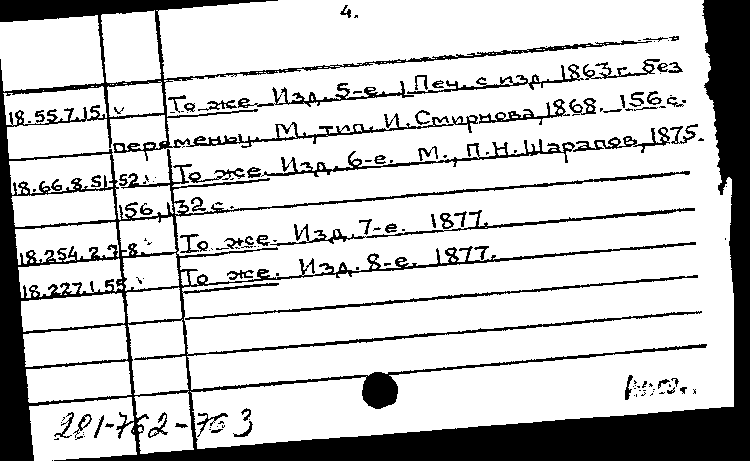 4.
18.55.7.15. v То же. Изд. 5-е. | Печ. с изд. 1863 г. без
перемены|. М., тип. И. Смирнова, 1868. 156 с.
18.66.8.51-52. v То же. Изд. 6-е. М., П.Н. Шарапов, 1875.
156, 132 с.
18.254.2.7-8. v То же. Изд. 7-е. 1877.
18.227.1.55. v То же. Изд. 8-е. 1877.
281-762-763